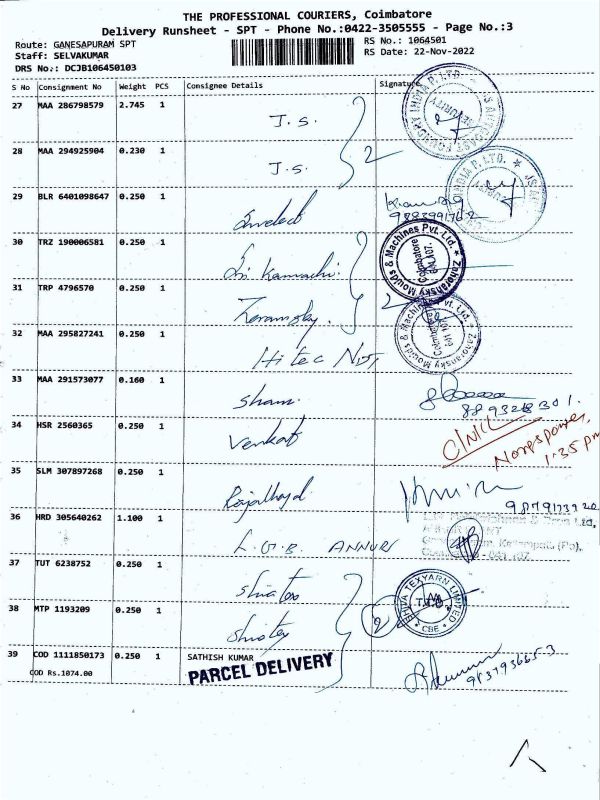 THE PROFESSIONAL COURIERS, Coimbatore
Delivery Runsheet - SPT - Phone No.:0422-3505555 - Page No.:3
Route: GANESAPURAM SPT
RS No.: 1064501
Staff: SELVAKUMAR
RS Date: 22-Nov-2022
DRS No.: DCJB106450103
S No Consignment No Weight PCS Consignee Details Signature
27 MAA 286798579 2.745 1
J.S.
28 MAA 294925904 0.230 1 2
J.S.
29 BLR 6401098647 0.250 1
30 TRZ 190006581 0.250 1
Sri Kamachi
31 TRP 4796570 0.250 1 2
32 MAA 295827241 0.250 1
Hitec NDT
33 MAA 291573077 0.160 1
Sham
34 HSR 2560365 0.250 1
Venkat
1.35 pm
35 SLM 307897268 0.250 1
36 HRD 305640262 1.100 1
L.G.B. ANNUR
37 TUT 6238752 0.250 1
38 MTP 1193209 0.250 1 2
SHIVA TEXYARN LIMITED
CBE
39 COD 1111850173 0.250 1 SATHISH KUMAR
COD Rs.1074.00 PARCEL DELIVERY
Zahoransky Moulds & Machines Pvt. Ltd.
Coimbatore